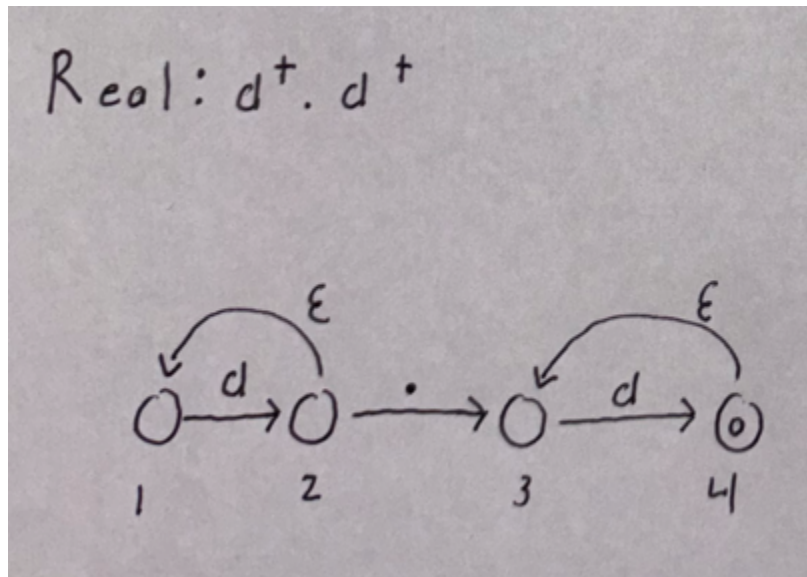 Real: d⁺. d⁺
ε ε
d . d
1 2 3 4